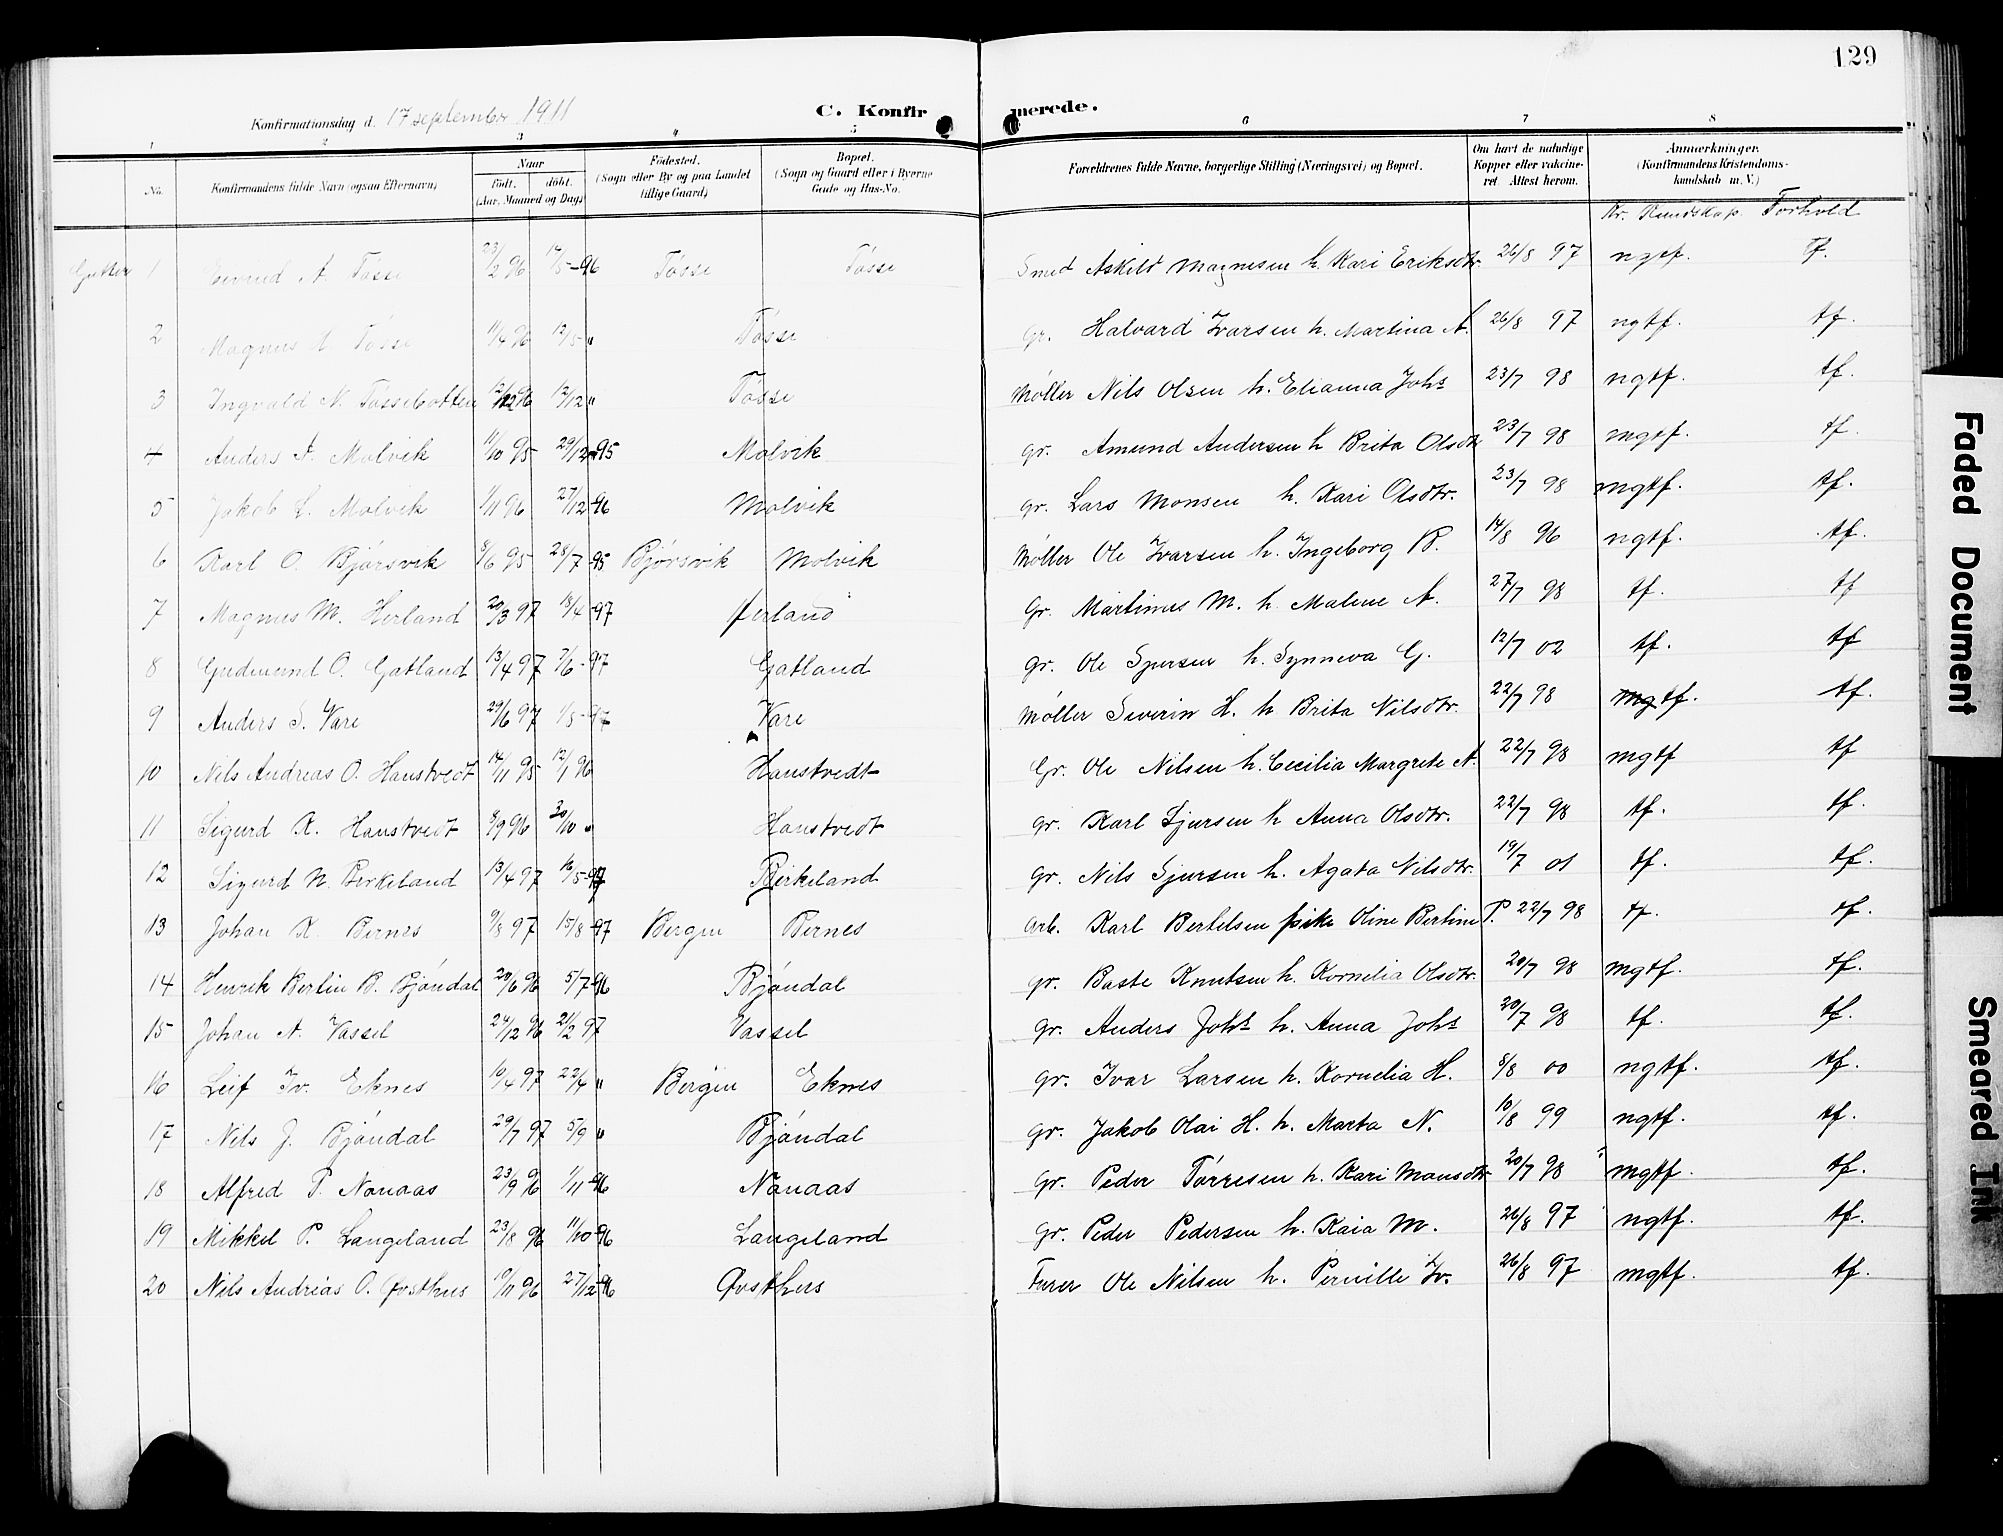 129
Konfirmationsdag d. 17 september 1911
C. Konfirmerede.
1 2 3 4 5 6 7 8
No. Konfirmandens fulde Navn (ogsaa Efternavn) Naar født. døbt. (Aar, Maaned og Dag) Fødested. (Sogn eller By og paa Landet tillige Gaard) Bopæl. (Sogn og Gaard eller i Byerne Gade og Hus-No. Forældrenes fulde Navne, borgerlige Stilling (Næringsvei) og Bopæl. Om havt de naturlige Kopper eller vaccineret. Attest herom. Anmærkninger. (Konfirmandens Kristendomskundskab m. V.)
Kr. Kundskap Forhold
Gutter 1 Eivind A. Tosse 23/2 96 17/5-96 Tosse Tosse Smed Askild Magnesen h. Kari Eriksdtr. 26/8 97 ngtf. tf.
2 Magnus H. Tosse 11/4 96 12/5 " Tosse gr. Halvard Ivarsen h. Martina A. 26/8 97 ngtf. tf.
3 Ingvald N. Tossebotten 12/12 " Tosse Møller Nils Olsen h. Elianna Johs 23/7 98 ngtf. tf.
4 Anders A. Molvik 11/10 95 29/12-95 Molvik gr. Amund Andersen h Brita Olsdtr 23/7 98 mgtf. tf.
5 Jakob L. Molvik 1/11 96 27/12-96 Molvik gr. Lars Monsen h. Kari Olsdtr. 23/7 98 mgtf. tf.
6 Karl O. Bjørsvik 8/6 95 28/7-95 Bjørsvik Molvik Møller Ole Ivarsen h. Ingeborg B. 14/8 96 ngtf. tf.
7 Magnus M. Herland 20/3 97 18/4-97 Herland Gr. Martinus M. h. Malene A. 27/7 98 tf. tf
8 Gudmund O. Gatland 13/4 97 7/6-97 Gatland gr. Ole Sjursen h. Synneva G. 12/7 02 tf. tf
9 Anders S. Vare 29/6 97 1/8-97 Vare Møller Severin H. h Brita Nilsdtr. 22/7 98 mgtf. tf.
10 Nils Andreas O. Hanstvedt 14/11 95 12/1 96 Hanstvedt Gr. Ole Nilsen h. Cecilia Margrete A. 22/7 98 mgtf tf
11 Sigurd K. Hanstvedt 8/9 96 30/10 " Hanstvedt gr. Karl Sjursen h Anna Olsdtr. 22/7 98 tf. tf.
12 Sigurd N. Birkeland 13/4 97 16/5-97 Birkeland gr. Nils Sjursen h. Agata Nilsdtr. 19/7 01 tf. tf.
13 Johan K. Bernes 9/8 97 15/8-97 Bergen Bernes arb. Karl Bertelsen pike Oline Bertine P. 22/7 98 tf. tf.
14 Henrik Berlin B. Bjøndal 20/6 96 5/7-96 Bjøndal gr. Baste Knutsen h. Kornelia Olsdtr. 20/7 98 mgtf. tf.
15 Johan A. Vassel 24/12 96 21/2 97 Vassel gr. Anders Johs h. Anna Johs 20/7 98 tf. tf.
16 Leif Iv. Eknes 10/4 97 22/4 " Bergen Eknes gr. Ivar Larsen h. Kornelia H. 8/8 00 ngtf. tf.
17 Nils J. Bjøndal 29/7 97 5/9 " Bjøndal gr. Jakob Olai H. h. Marta N. 10/8 99 ngtf. tf.
18 Alfred P. Nonaas 23/9 96 1/11-96 Nonaas Gr. Peder Tørresen h. Kari Monsdtr 20/7 98 mgtf. tf.
19 Mikkel P. Langeland 23/8 96 11/10-96 Langeland Gr. Peder Pedersen h. Kaia M. 26/8 97 ngtf. tf.
20 Nils Andreas O. Øvsthus 10/11 96 27/12-96 Øvsthus Furer Ole Nilsen h. Pernille Iv. 26/8 97 mgtf. tf.
Faded Document
Smeared Ink